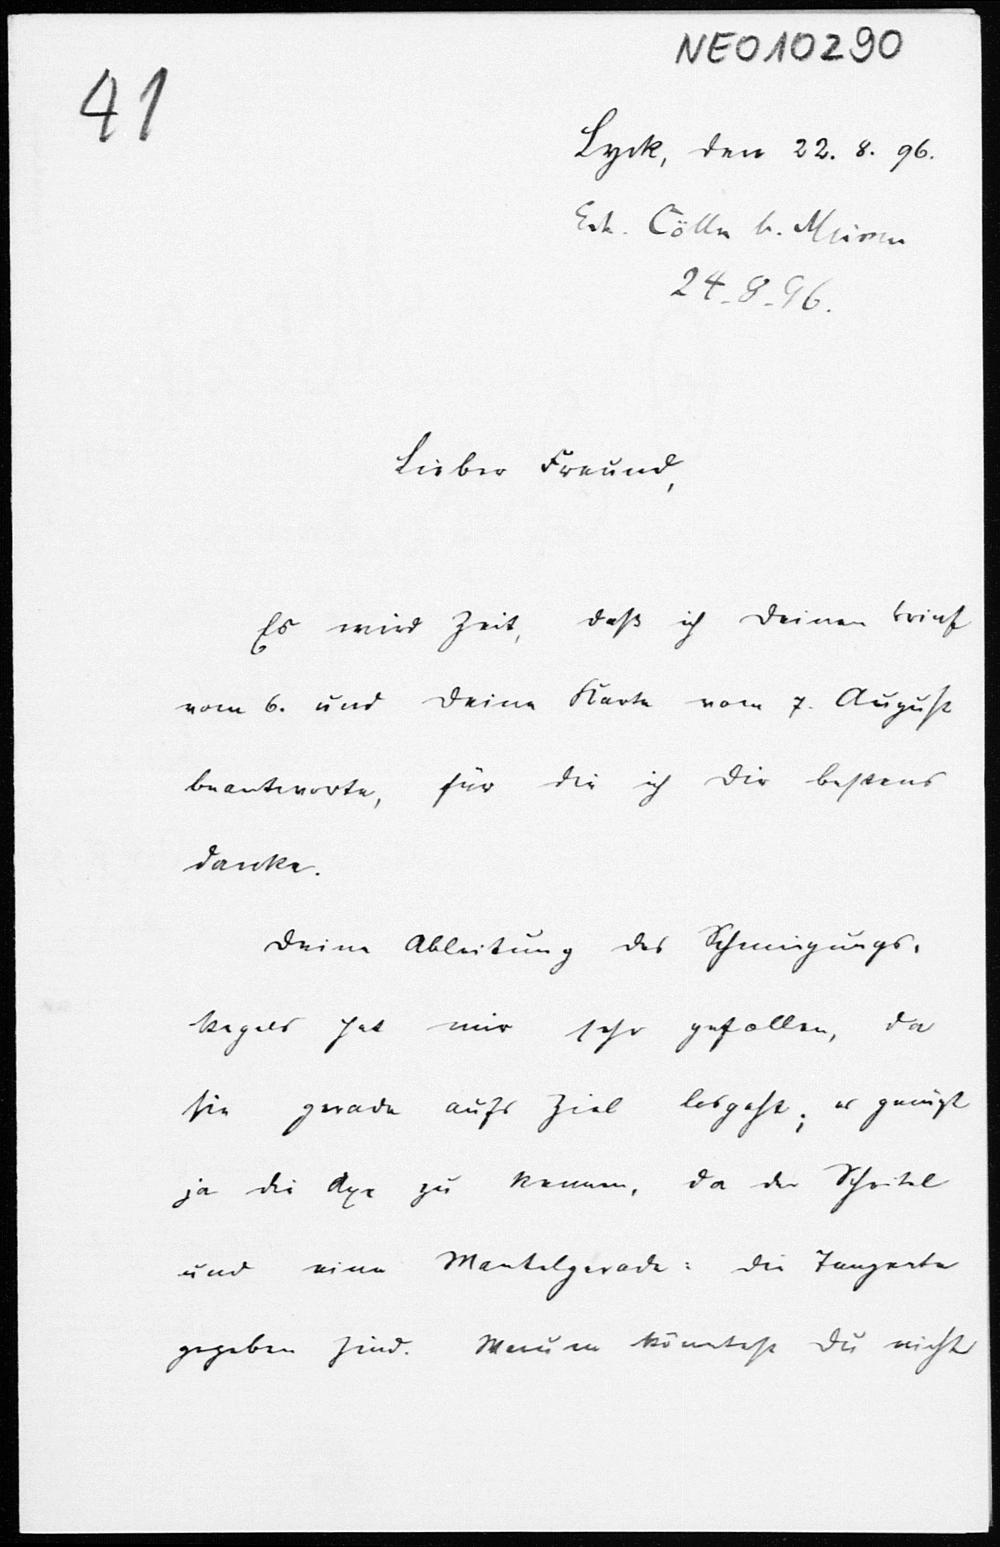 NE010290
41
Lyck, den 22. 8. 96.
Erh. Cölln b. Meissen
24-8-96.
Lieber Freund,
Es wird Zeit, daß ich Deinen Brief
vom 6. und Deine Karte vom 7. August
beantworte, für die ich Dir bestens
danke.
Deine Ableitung des Schmiegungs-
kegels hat mir sehr gefallen, da
sie gerade aufs Ziel losgeht; es genügt
ja die Axe zu kennen, da der Scheitel
und eine Mantelgerade: die Tangente
gegeben sind. Warum könntest Du nicht